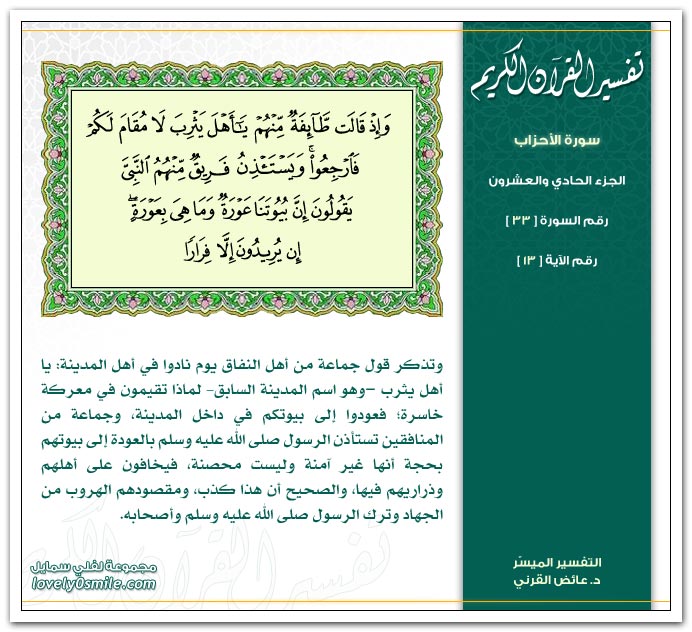 تفسير القرآن الكريم
سورة الأحزاب
الجزء الحادي والعشرون
رقم السورة [ ٣٣ ]
رقم الآية [ ١٣ ]
وَإِذْ قَالَت طَّآئِفَةٌ مِّنْهُمْ يَٰٓأَهْلَ يَثْرِبَ لَا مُقَامَ لَكُمْ
فَٱرْجِعُوا۟ ۚ وَيَسْتَـْٔذِنُ فَرِيقٌ مِّنْهُمُ ٱلنَّبِىَّ
يَقُولُونَ إِنَّ بُيُوتَنَا عَوْرَةٌ وَمَا هِىَ بِعَوْرَةٍ ۖ
إِن يُرِيدُونَ إِلَّا فِرَارًا
وتذكر قول جماعة من أهل النفاق يوم نادوا في أهل المدينة: يا
أهل يثرب –وهو اسم المدينة السابق- لماذا تقيمون في معركة
خاسرة؛ فعودوا إلى بيوتكم في داخل المدينة، وجماعة من
المنافقين تستأذن الرسول صلى الله عليه وسلم بالعودة إلى بيوتهم
بحجة أنها غير آمنة وليست محصنة، فيخافون على أهلهم
وذراريهم فيها، والصحيح أن هذا كذب، ومقصودهم الهروب من
الجهاد وترك الرسول صلى الله عليه وسلم وأصحابه.
التفسير الميسّر
د. عائض القرني
مجموعة لفلي سمايل
lovely0smile.com
تفسير القرآن الكريم